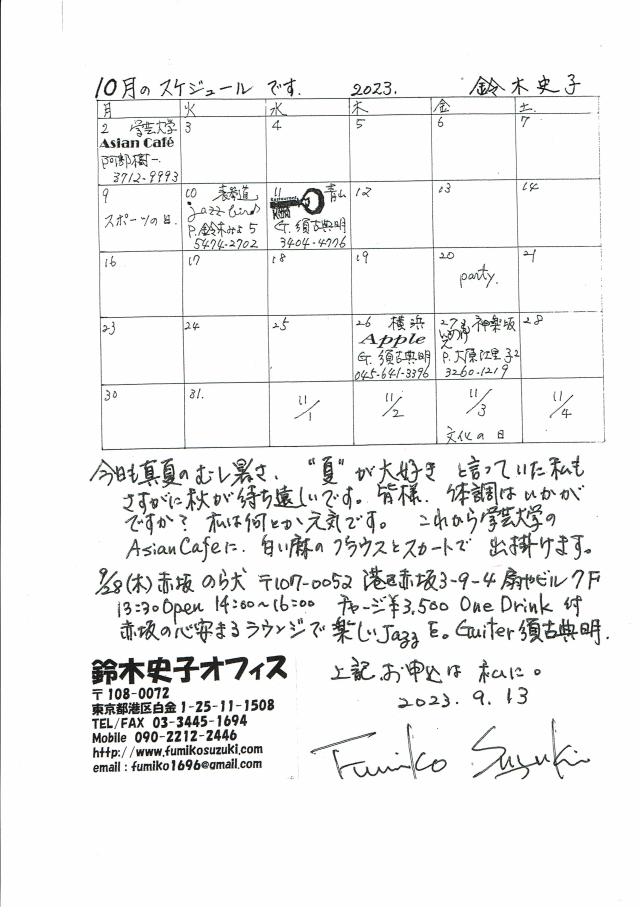 10月のスケジュール です. 2023. 鈴木史子
月 火 水 木 金 土.
2 学芸大学 3 4 5 6 7
Asian Café
阿部樹一
3712-9993
9 10 表参道 11 青山 12 13 14
スポーツの日.
P.鈴木みよ5 G.須古典明
5474-2702 3404-4776
16 17 18 19 20 21
party.
23 24 25 26 横浜 27 神楽坂 28
Apple
G.須古典明 P.大原江里子2
045-641-3396 3260-1219
30 31. 11/1 11/2 11/3 11/4
文化の日
今日も真夏のむし暑さ、"夏"が大好き と言っていた私も
さすがに秋が待ち遠しいです。皆様、体調はいかが
ですか? 私は何とか元気です。 これから学芸大学の
Asian Cafeに、白い麻のブラウスとスカートで 出掛けます。
9/28(木)赤坂 のら犬 〒107-0052 港区赤坂3-9-4 扇やビル7F
13:30 Open 14:00〜16:00 チャージ¥3,500 One Drink 付
赤坂の心安まるラウンジで楽しいJazz を。Guiter 須古典明.
上記、お申込は 私に。
2023.9.13
Fumiko Suzuki
鈴木史子オフィス
〒108-0072
東京都港区白金1-25-11-1508
TEL/FAX 03-3445-1694
Mobile 090-2212-2446
http://www.fumikosuzuki.com
email : fumiko1696@gmail.com